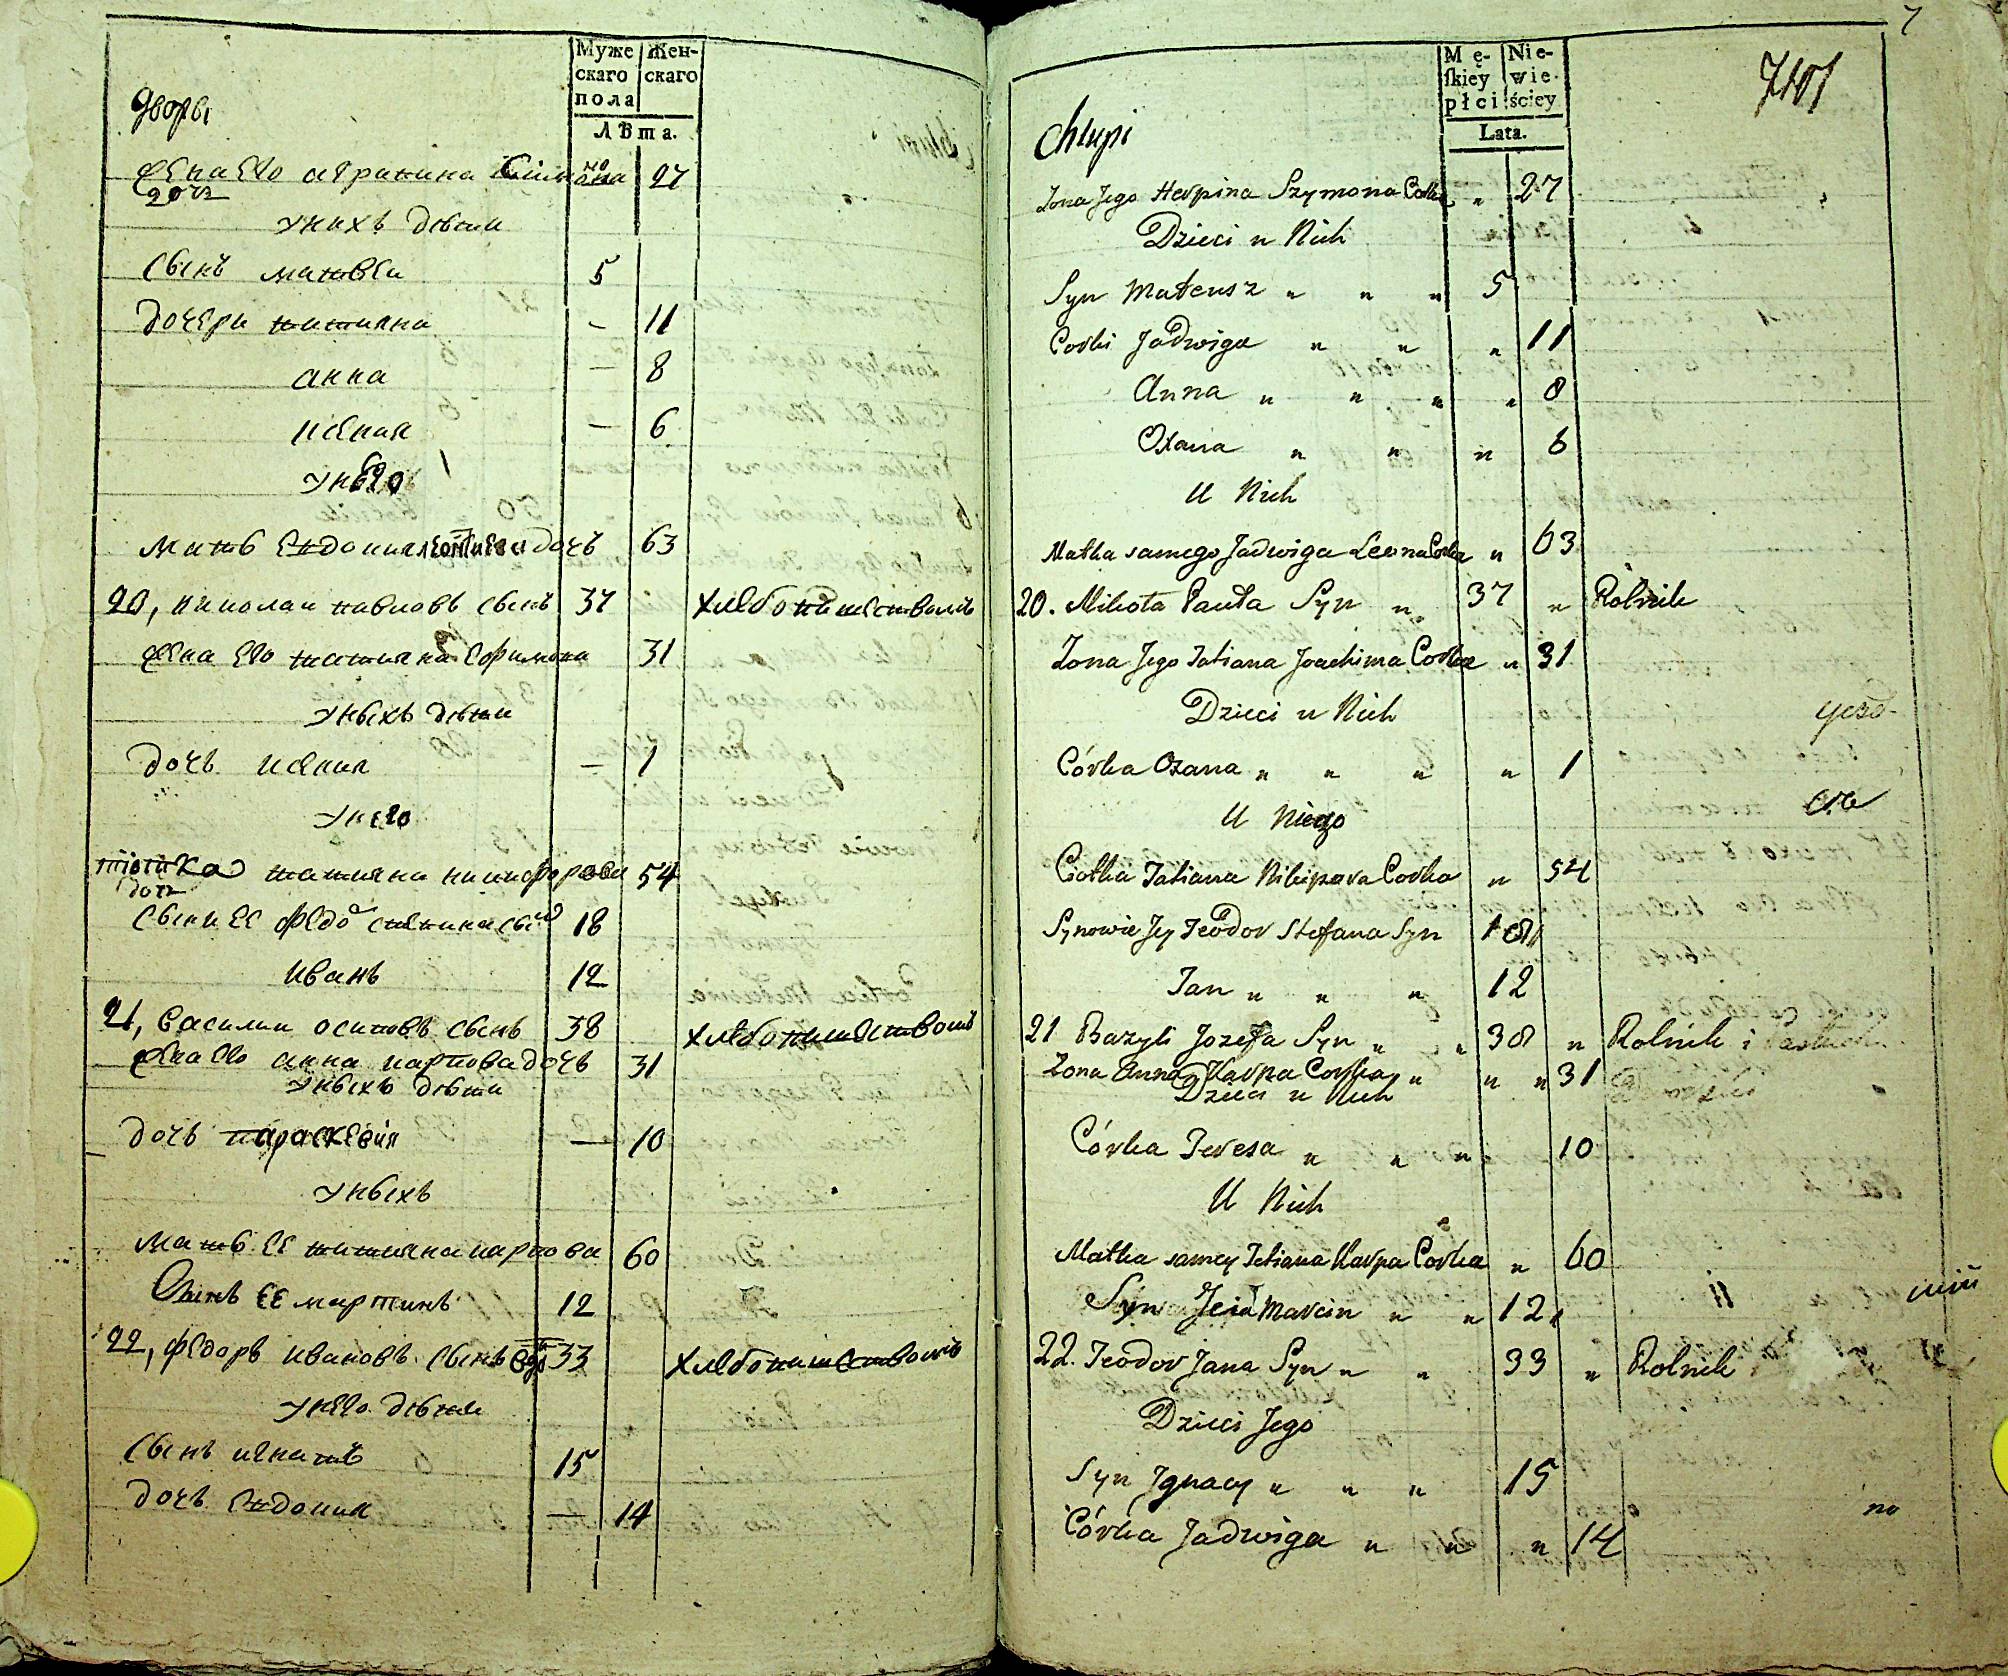 Муже Жен-
скаго скаго
пола
Лѣта.
дворы
жена его агрипина Симоно 27
дочь
у нихъ дѣти
сынъ матвеи 5
дочери татияна — 11
анна — 8
ксения — 6
у него
мать евдокия леонтиева дочь 63
20, николаи павловъ сынъ 37 хлебопашествомъ
жена его татияна ефимова 31
у ныхъ дѣти
дочь ксения — 1
у него
тіотка татияна никифорова 54
дочь
сыни ее федо степина сынъ 18
иванъ 12
21, василии осиповъ сынъ 38 хлебопашествомъ
жена его анна карпова дочь 31
у ныхъ дѣти
дочь параскевия — 10
у ныхъ
мать ее татияна карпова 60
Сынъ ее мартинъ 12
22, федоръ ивановъ сынъ вдо 33 хлебопашествомъ
у него дѣти
сынъ игнатъ 15
дочь евдокия — 14
7
Mę- Nie-
ſkiey wie-
płci ściey
Lata.
Chłupi
Zona Jego Herpina Szymona Corka „ 27
Dzieci u Nich
Syn Mateusz „ „ „ 5
Corki Jadwiga „ „ „ 11
Anna „ „ „ „ 8
Oxana „ „ „ 6
U Nich
Matka samego Jadwiga Leona Corka „ 63
20. Mikoła Pauła Syn „ 37 „ Rolnik
Zona Jego Tatiana Joachima Corka „ 31
Dzieci u Nich
Córka Oxana „ „ „ „ 1
U Niego
Ciotka Tatiana Nikipara Corka „ 54
Synowie Jey Teodor Stefana Syn 18
Jan „ „ „ 12
21 Bazyli Jozefa Syn „ „ 38 „ Rolnik i
Zona Anna Karpa Corka „ „ „ 31
Dzieci u Nich
Córka Teresa „ „ „ 10
U Nich
Matka samey Tatiana Karpa Corka „ 60
Syn Jeia Marcin „ „ 12
22. Teodor Jana Syn „ „ 33 „ Rolnik
Dzieci Jego
Syn Jgnacy „ „ „ 15
Córka Jadwiga „ „ „ 14